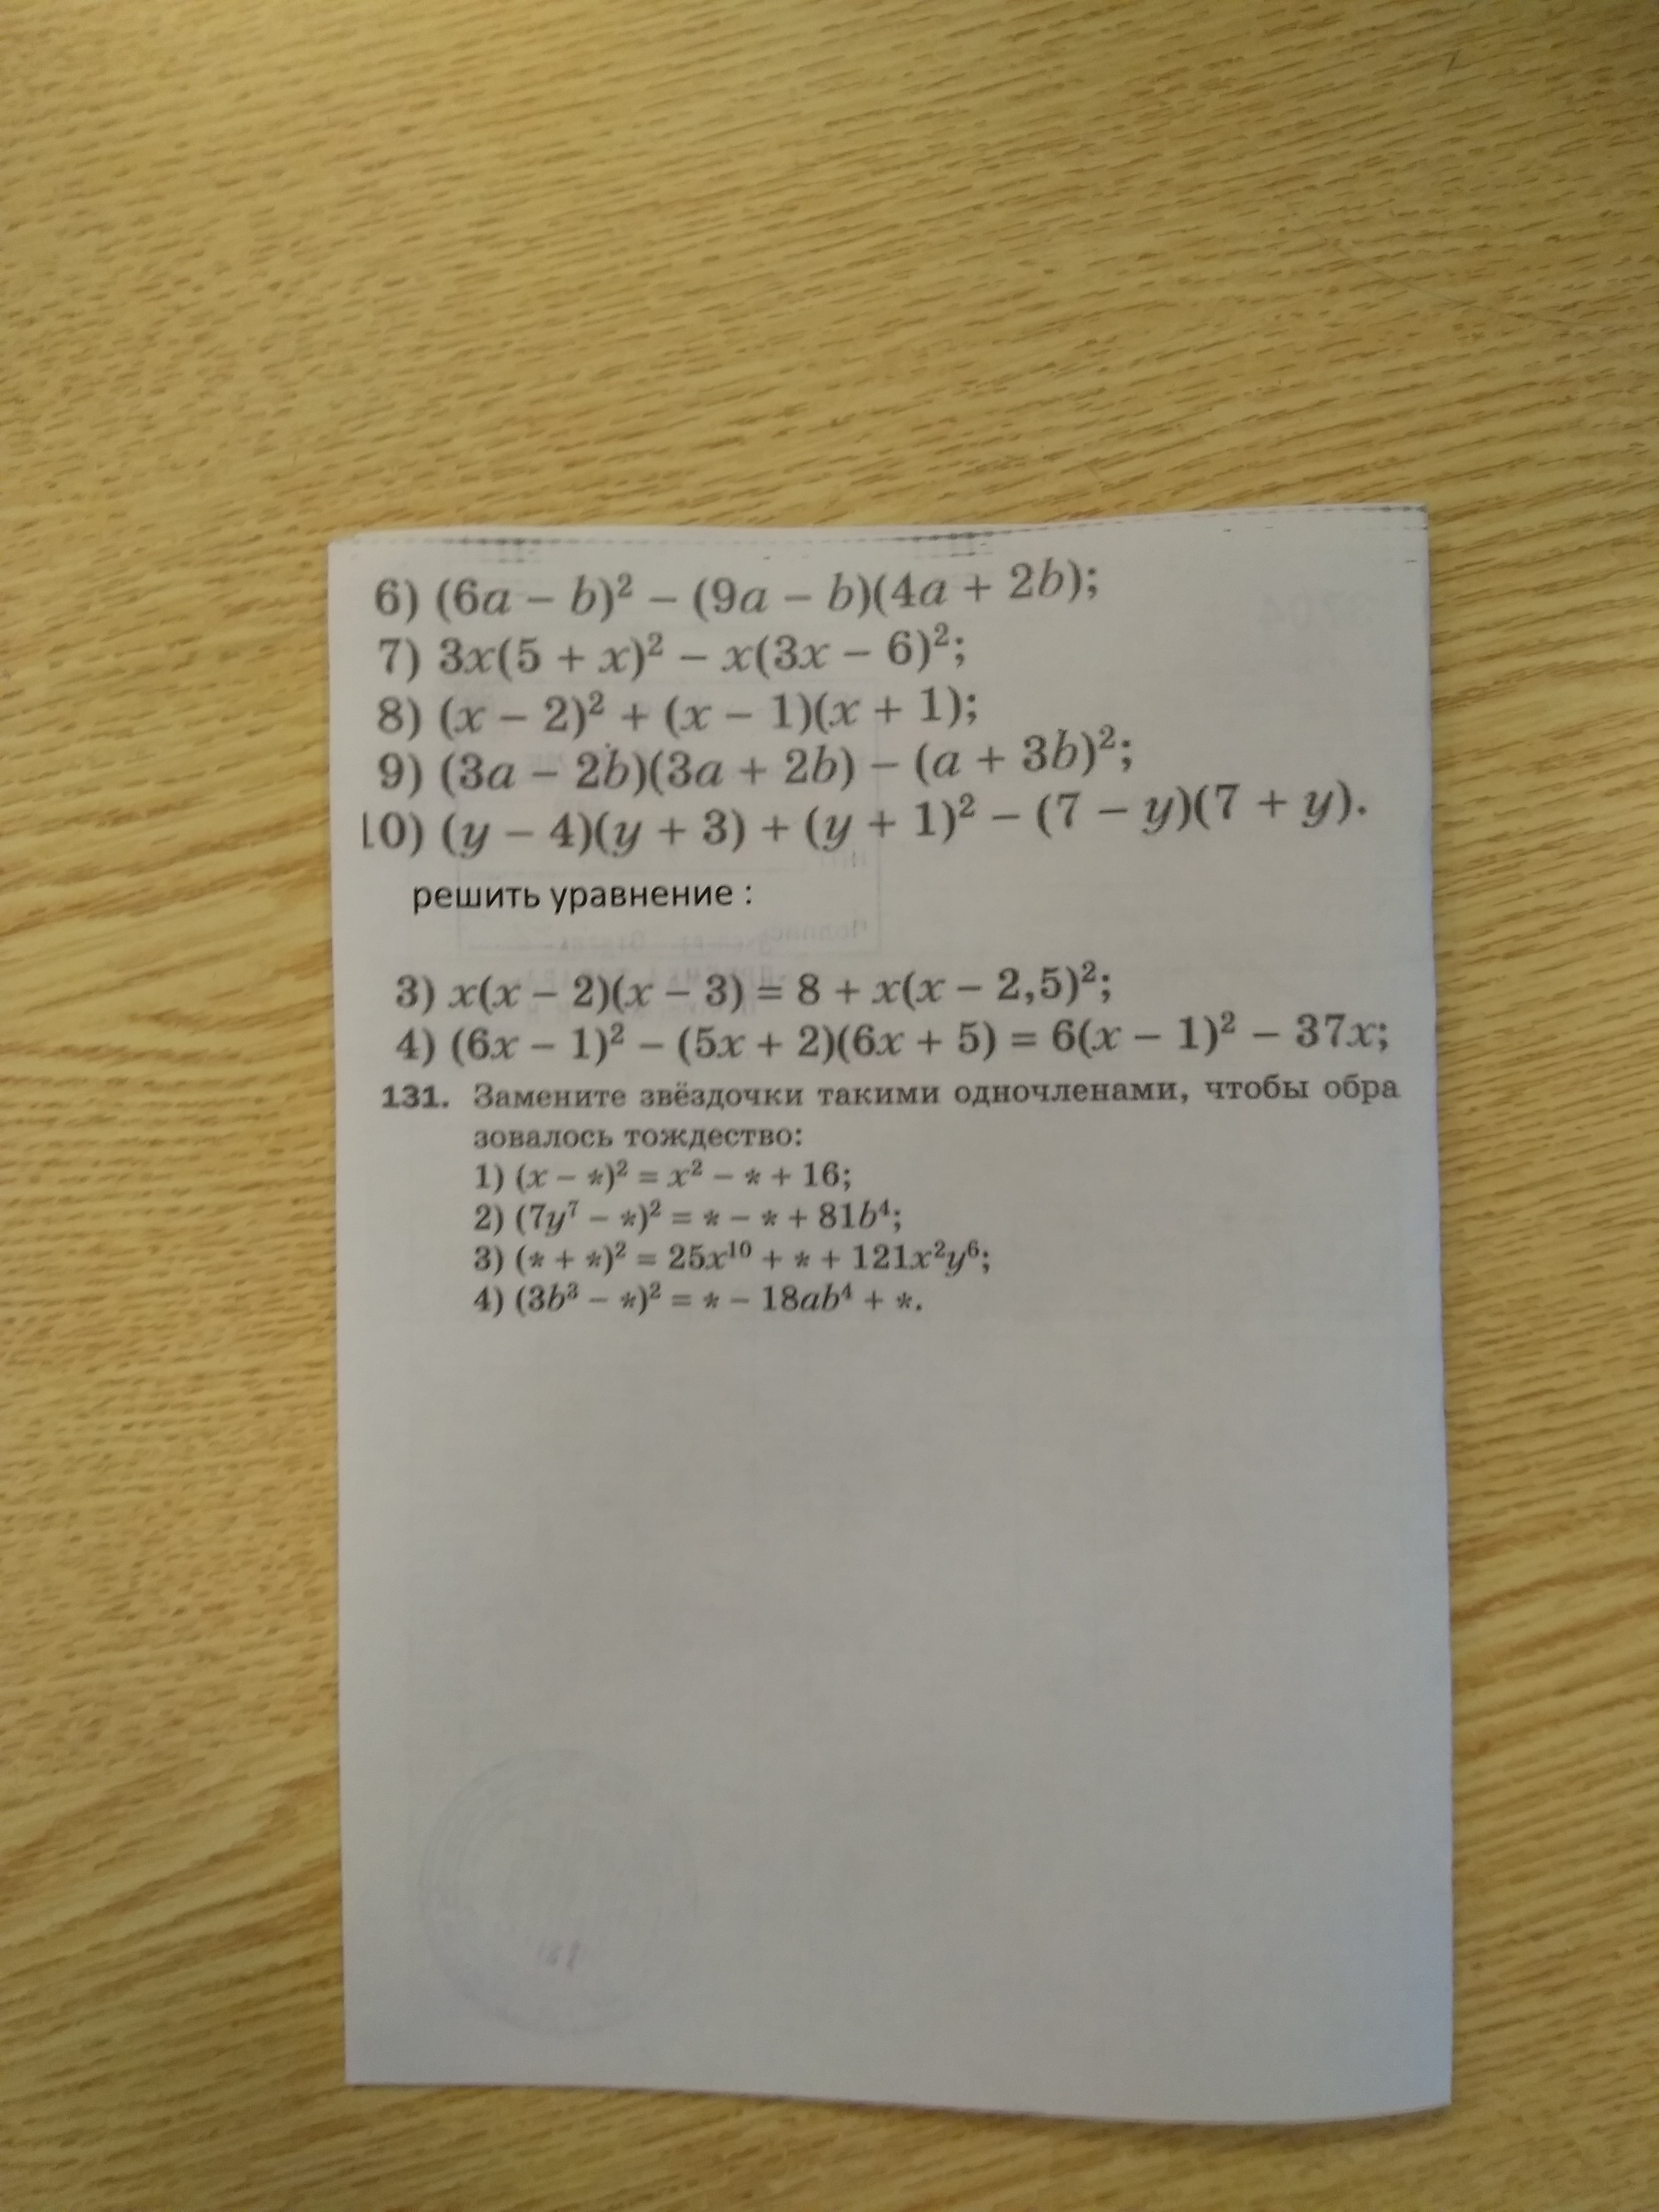 6) (6a – b)² – (9a – b)(4a + 2b);
7) 3x(5 + x)² – x(3x – 6)²;
8) (x – 2)² + (x – 1)(x + 1);
9) (3a – 2b)(3a + 2b) – (a + 3b)²;
10) (y – 4)(y + 3) + (y + 1)² – (7 – y)(7 + y).
решить уравнение :
3) x(x – 2)(x – 3) = 8 + x(x – 2,5)²;
4) (6x – 1)² – (5x + 2)(6x + 5) = 6(x – 1)² – 37x;
131. Замените звёздочки такими одночленами, чтобы обра
зовалось тождество:
1) (x – *)² = x² – * + 16;
2) (7y⁷ – *)² = * – * + 81b⁴;
3) (* + *)² = 25x¹⁰ + * + 121x²y⁶;
4) (3b³ – *)² = * – 18ab⁴ + *.